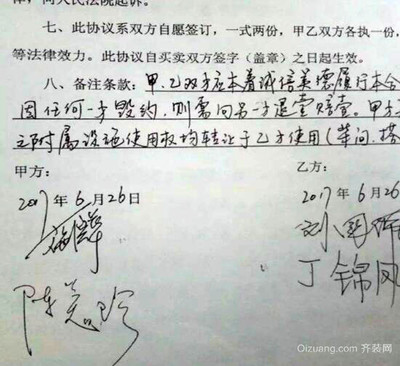 律，向人民法院起诉。
七、此协议系双方自愿签订，一式两份，甲乙双方各执一份，
等法律效力。此协议自买卖双方签字（盖章）之日起生效。
八、备注条款：甲、乙双方应本着诚信美德履行本合
因任何一方毁约，则需向另一方退壹赔壹。甲方
之附属设施使用权均转让于乙方使用（草间、塔
甲方：
乙方：
2017年6月26日
2017年6月26
刘国
陈
丁锦凤
Oizuang.com 齐装网